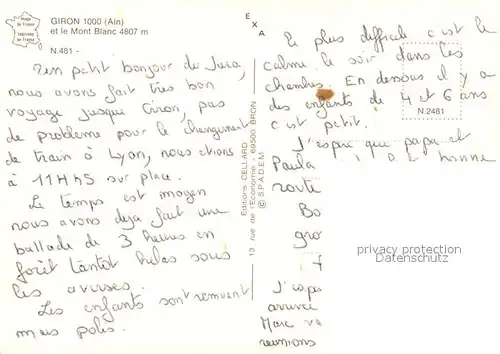 GIRON 1000 (Ain)
et le Mont Blanc 4807 m
N.481 -
Un petit bonjour de Jura,
nous avons fait très bon
voyage jusque Giron, pas
de problème pour le changement
de train à Lyon, nous étions
à 11H45 sur place.
Le temps est moyen
nous avons déjà fait une
ballade de 3 heures en
forêt tantôt hélas sous
les averses.
Les enfants sont remuant
mais polis.
EXA
Editions CELLARD
13 rue de l'Economie - 69500 BRON
© S.P.A.D.E.M.
le plus difficile c'est le
calme le soir dans les
chambres. En dessous il y a
des enfants de 4 et 6 ans
c'est petit.
N.2481
J'espère que papa et
Paula
route
Bo
gro
J'espè
arrivé
Marc va
reunions
privacy protection
Datenschutz